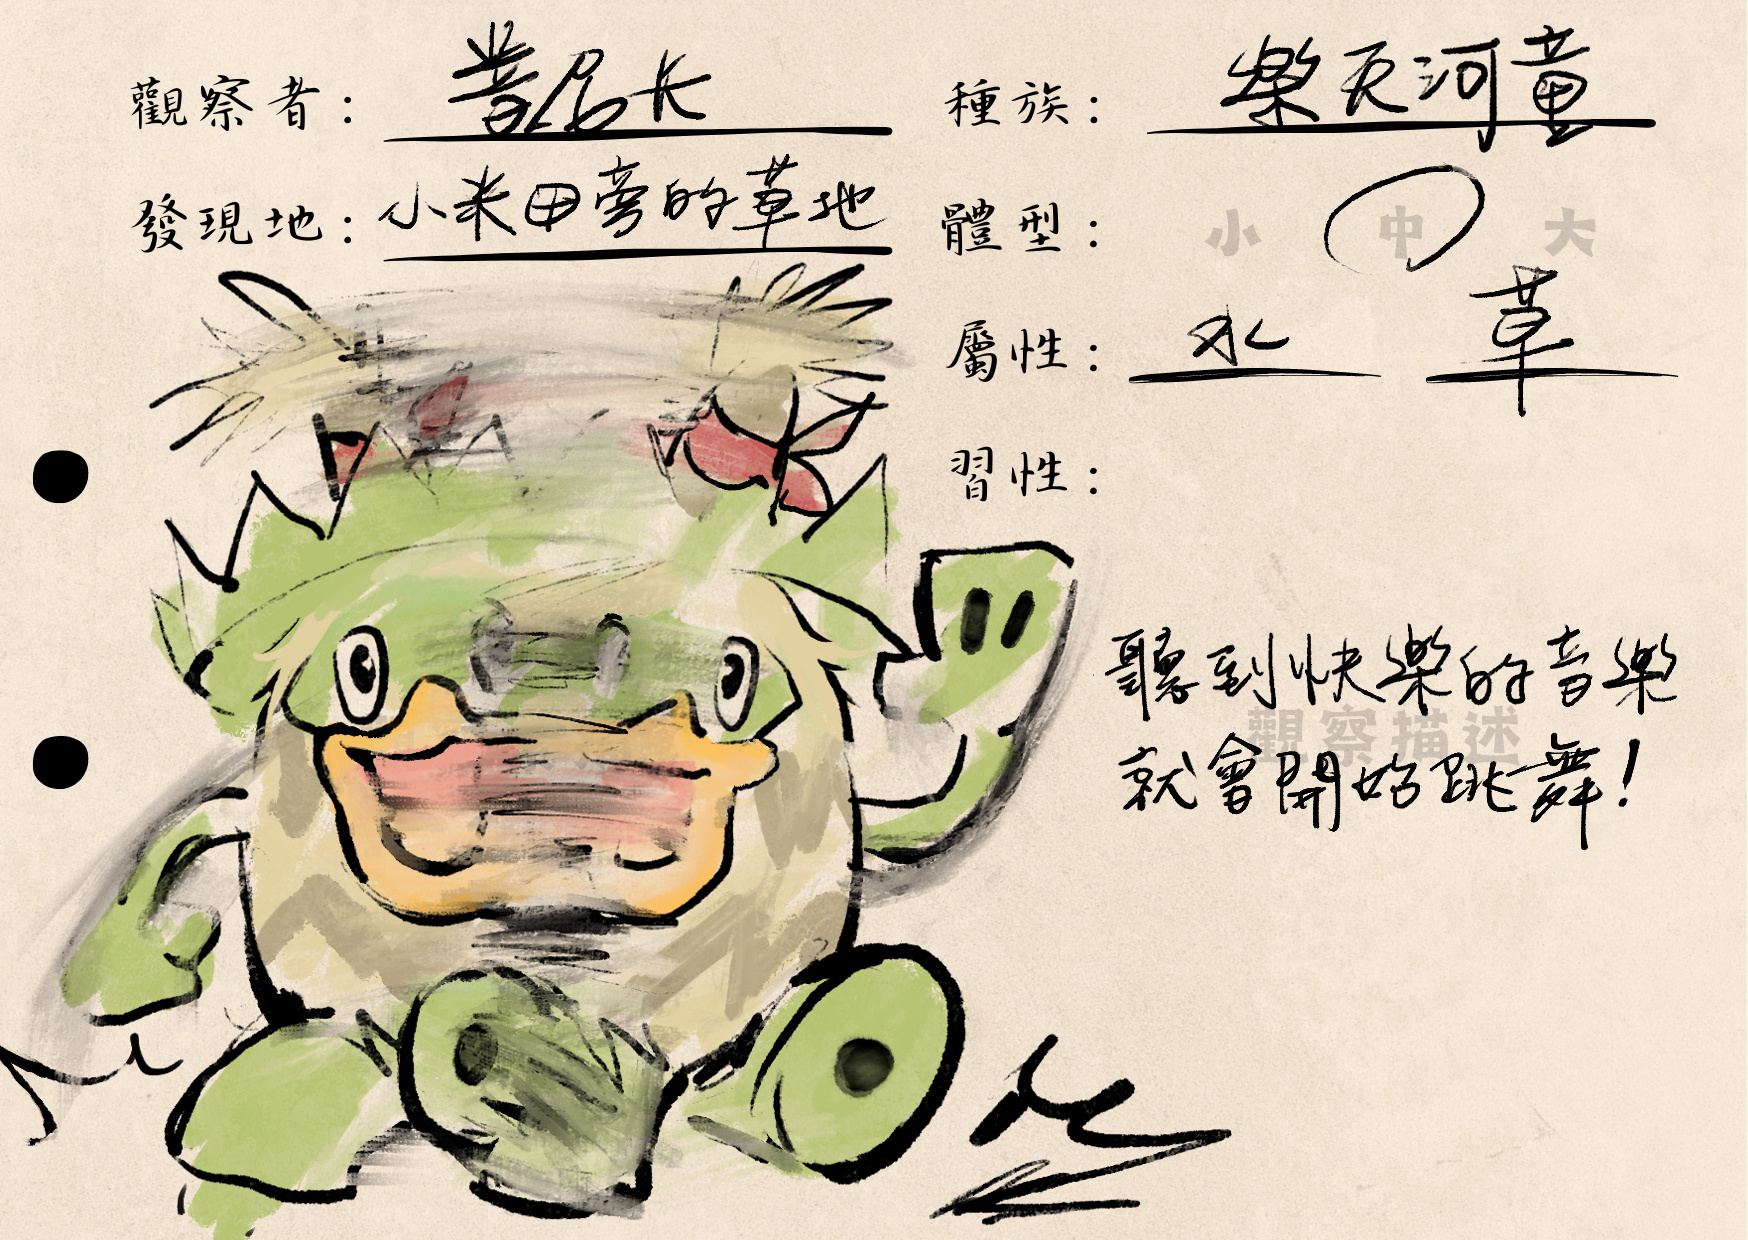 觀察者：
種族：樂天河童
發現地：小米田旁的草地
體型：小 中 大
屬性：水 草
習性：
聽到快樂的音樂
觀察描述
就會開始跳舞！